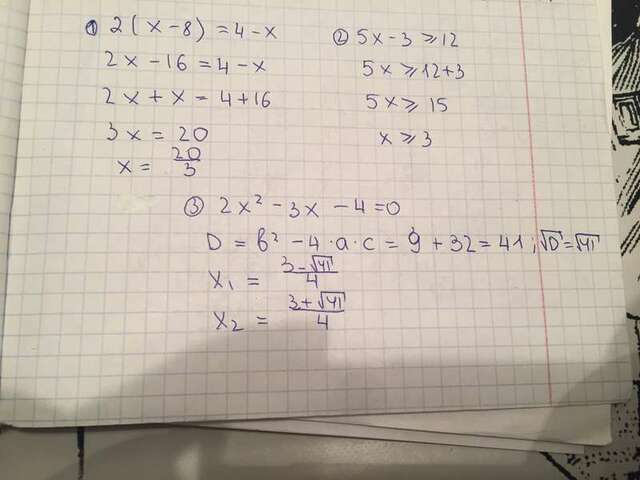 ① 2(x-8)=4-x
2x-16=4-x
2x+x=4+16
3x=20
x=20/3
② 5x-3⩾12
5x⩾12+3
5x⩾15
x⩾3
③ 2x²-3x-4=0
D=b²-4·a·c=9+32=41; √D=√41
x₁=(3-√41)/4
x₂=(3+√41)/4